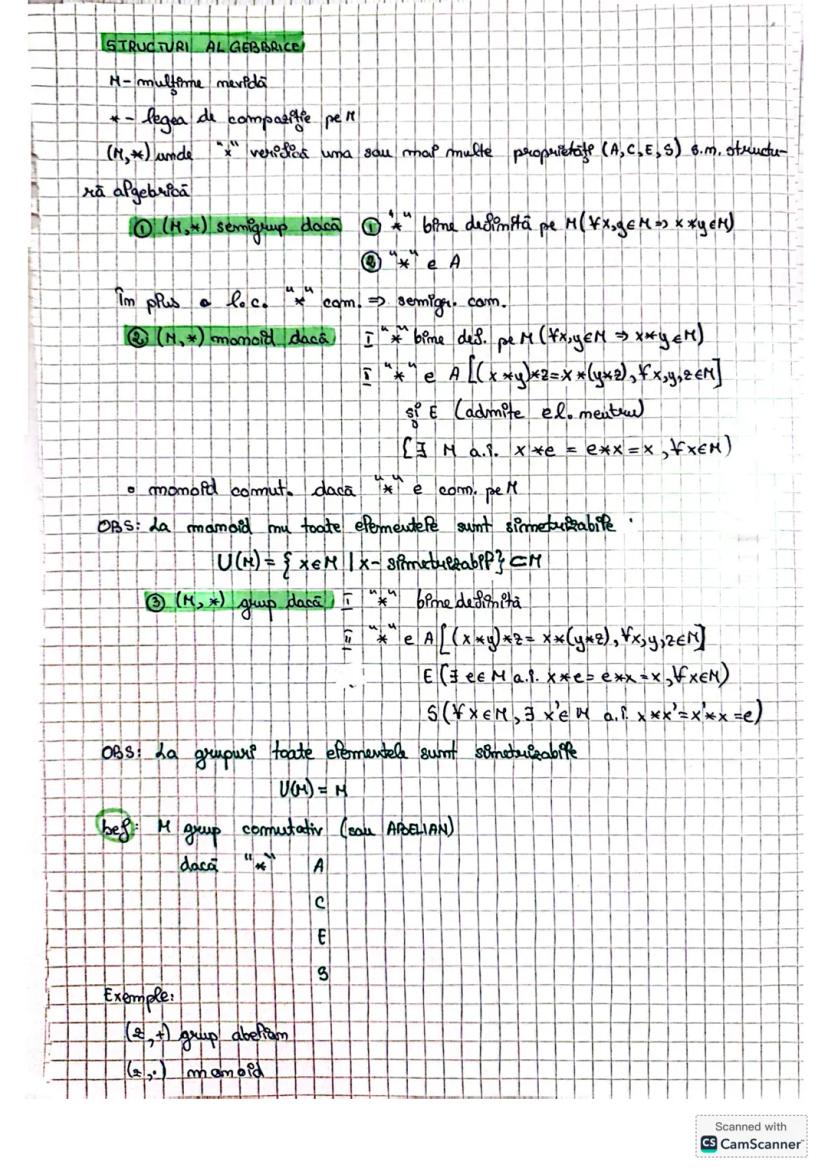 STRUCTURI ALGEBBRICE
M- mulțime nevidă
* - legea de compoziție pe M
(M,*) unde "*" verifică una sau mai multe proprietăți (A,C,E,S) s.m. structu-
ră algebrică
① (M,*) semigrup dacă ① "*" bine definită pe M(∀x,y∈M ⇒ x*y∈M)
② "*" e A
În plus o l.c. "*" com. ⇒ semigr. com.
② (M,*) monoid dacă I "*" bine def. pe M (∀x,y∈M ⇒ x*y∈M)
II "*" e A [(x*y)*z=x*(y*z),∀x,y,z∈M]
și E (admite el. neutru)
(∃ M a.î. x*e = e*x=x,∀x∈M)
• monoid comut. dacă "*" e com. pe M
OBS: La monoid nu toate elementele sunt simetrizabile.
U(M)={x∈M | x- simetrizabil} ⊂M
③ (M,*) grup dacă I "*" bine definită
II "*" e A[(x*y)*z= x*(y*z),∀x,y,z∈M]
E(∃ e∈M a.î. x*e= e*x=x,∀x∈M)
S(∀x∈M,∃ x'∈M a.î. x*x'=x'*x=e)
OBS: La grupuri toate elementele sunt simetrizabile
U(M)= M
Def: M grup comutativ (sau ABELIAN)
dacă "*" A
C
E
S
Exemple:
(Z,+) grup abelian
(Z,·) monoid
Scanned with
CS CamScanner